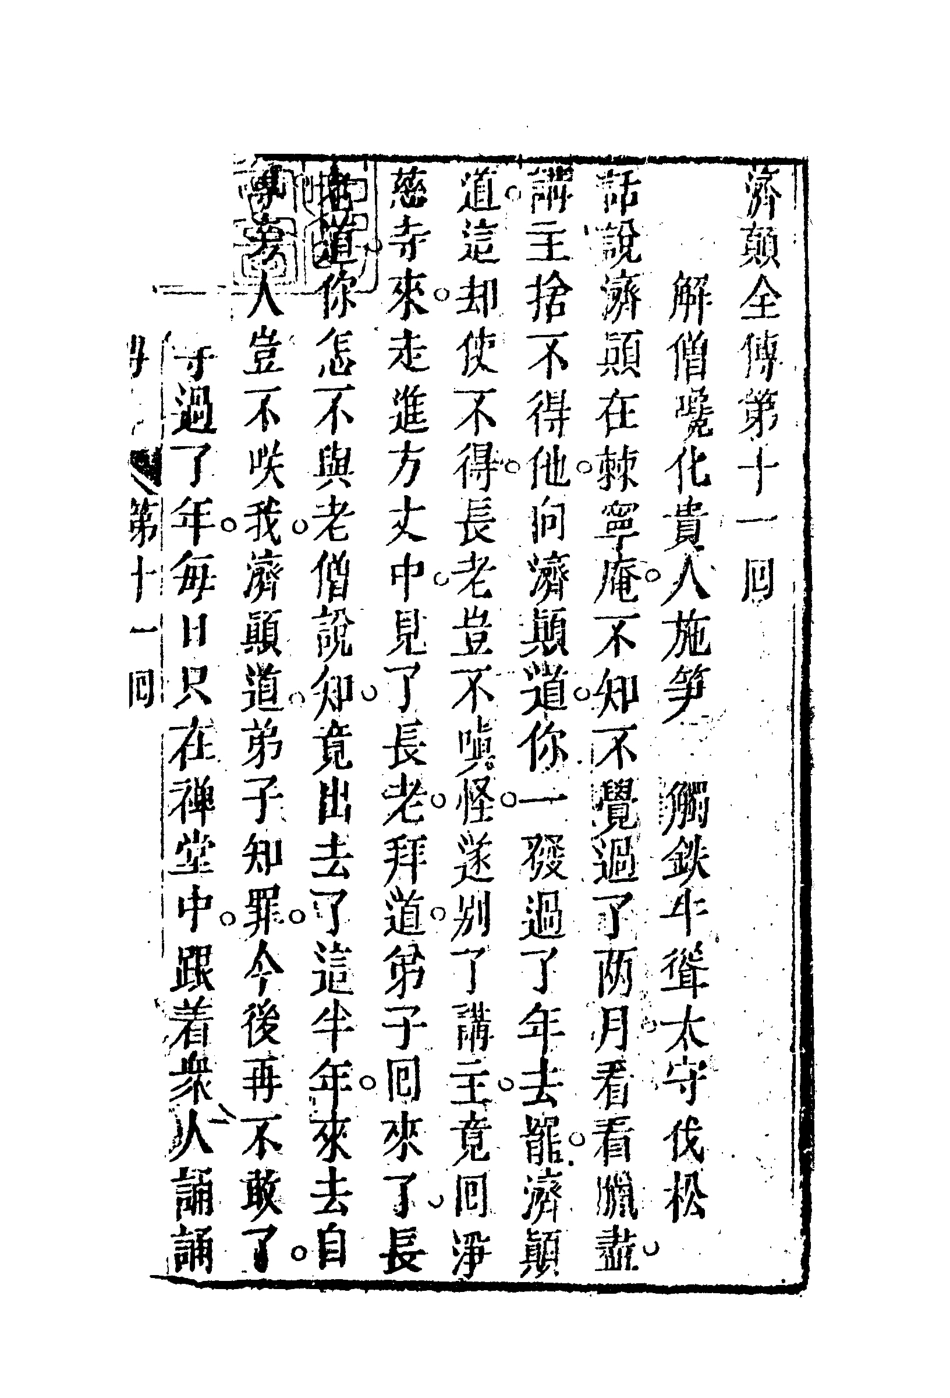 濟顛全傳第十一回
解僧嘴化貴人施笋　觸鉄牛聳太守伐松
話說濟顛在棘寧庵。不知不覺過了兩月。看看臘盡。
講主捨不得他。向濟顛道。你一發過了年去罷。濟顛
道。這却使不得。長老豈不嗔怪。遂別了講主。竟回淨
慈寺來。走進方丈中。見了長老。拜道。弟子回來了。長
老道。你怎不與老僧說知。竟出去了這半年。來去自
專。旁人豈不咲我。濟顛道。弟子知罪。今後再不敢了。
過了年。每日只在禅堂中。跟着衆人誦誦
第十一回